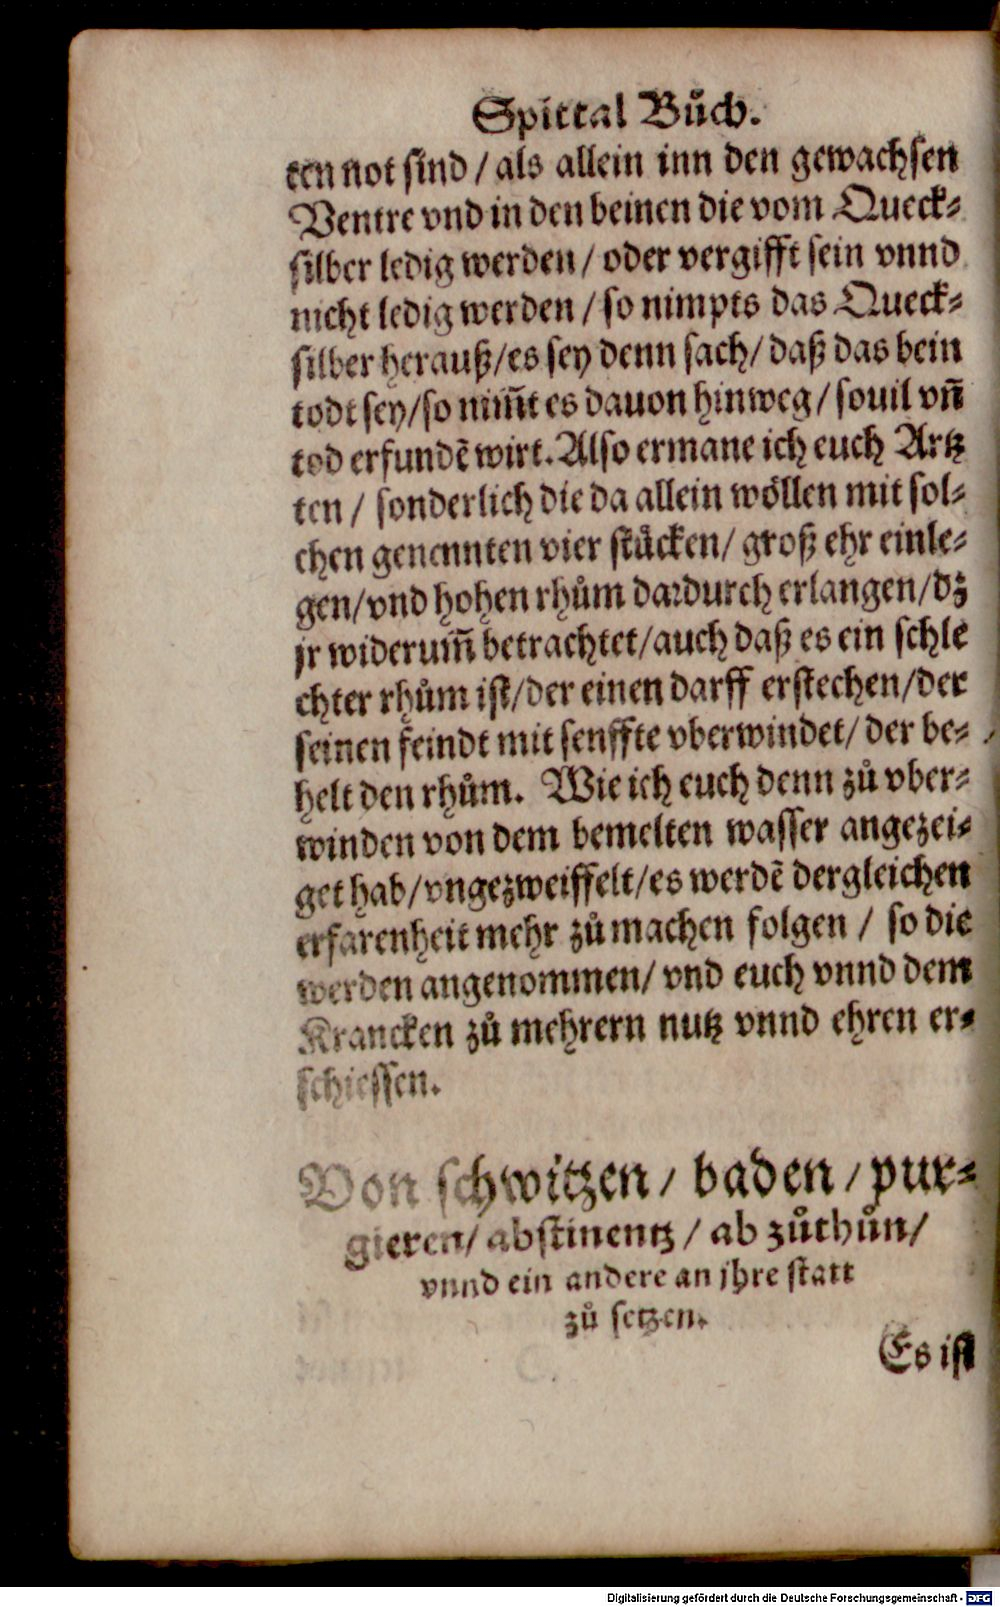 Spittal Bůch.
ten not sind / als allein inn den gewachsen
Ventre vnd in den beinen die vom Queck⸗
silber ledig werden / oder vergifft sein vnnd
nicht ledig werden / so nimpts das Queck⸗
silber herauß/es sey denn sach/ daß das bein
todt sey/so nim̄t es dauon hinweg / souil vn̄
tod erfundē wirt. Also ermane ich euch Artz
ten / sonderlich die da allein wöllen mit sol⸗
chen genennten vier stücken/ groß ehr einle⸗
gen/vnd hohen rhům dardurch erlangen/dz
jr widerum̄ betrachtet/auch daß es ein schle
chter rhům ist/der einen darff erstechen/der
seinen feindt mit senffte vberwindet/ der be⸗
helt den rhům. Wie ich euch denn zů vber⸗
winden von dem bemelten wasser angezei⸗
get hab/vngezweiffelt/es werdē dergleichen
erfarenheit mehr zů machen folgen / so die
werden angenommen/ vnd euch vnnd dem
Krancken zů mehrern nutz vnnd ehren er⸗
schiessen.
Von schwitzen / baden / pur⸗
gieren/ abstinentz / ab zůthůn/
vnnd ein andere an jhre statt
zů setzen.
Es ist
Digitalisierung gefördert durch die Deutsche Forschungsgemeinschaft - DFG